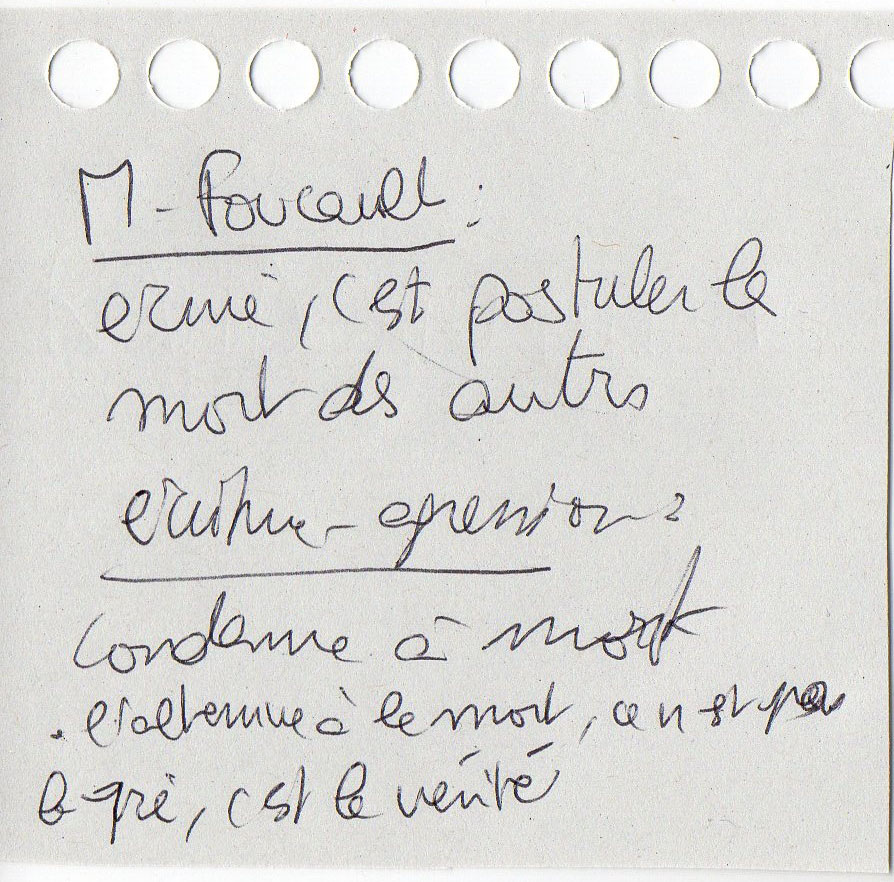 M. Foucault :
écrire, c'est postuler la
mort des autres
écriture-agression :
condamne à mort
. l'alternative à la mort, ce n'est pas
la , c'est la vérité